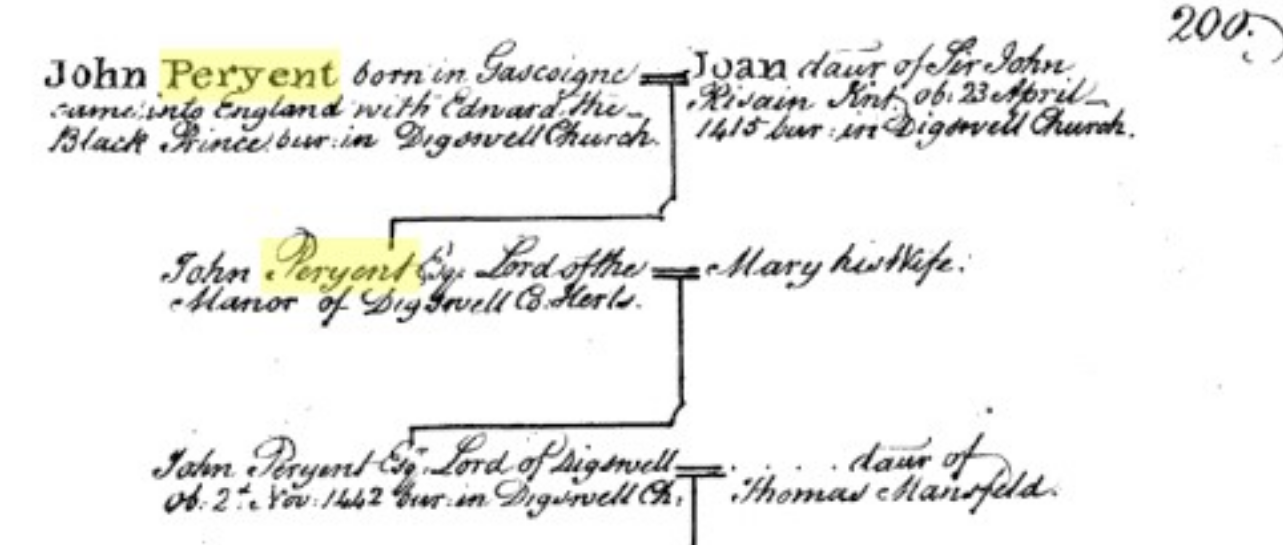 200.
John Peryent born in Gascoigne
came into England with Edward the
Black Prince bur: in Digswell Church.
Joan daur of Sir John
Risain Knt, ob: 23 April
1415 bur: in Digswell Church.
John Peryent Esqr. Lord of the
Manor of Digswell Co. Herts.
Mary his Wife.
John Peryent Esqr. Lord of Digswell
ob: 2d. Nov: 1442 bur: in Digswell Ch.
. . . . . daur of
Thomas Mansfeld.